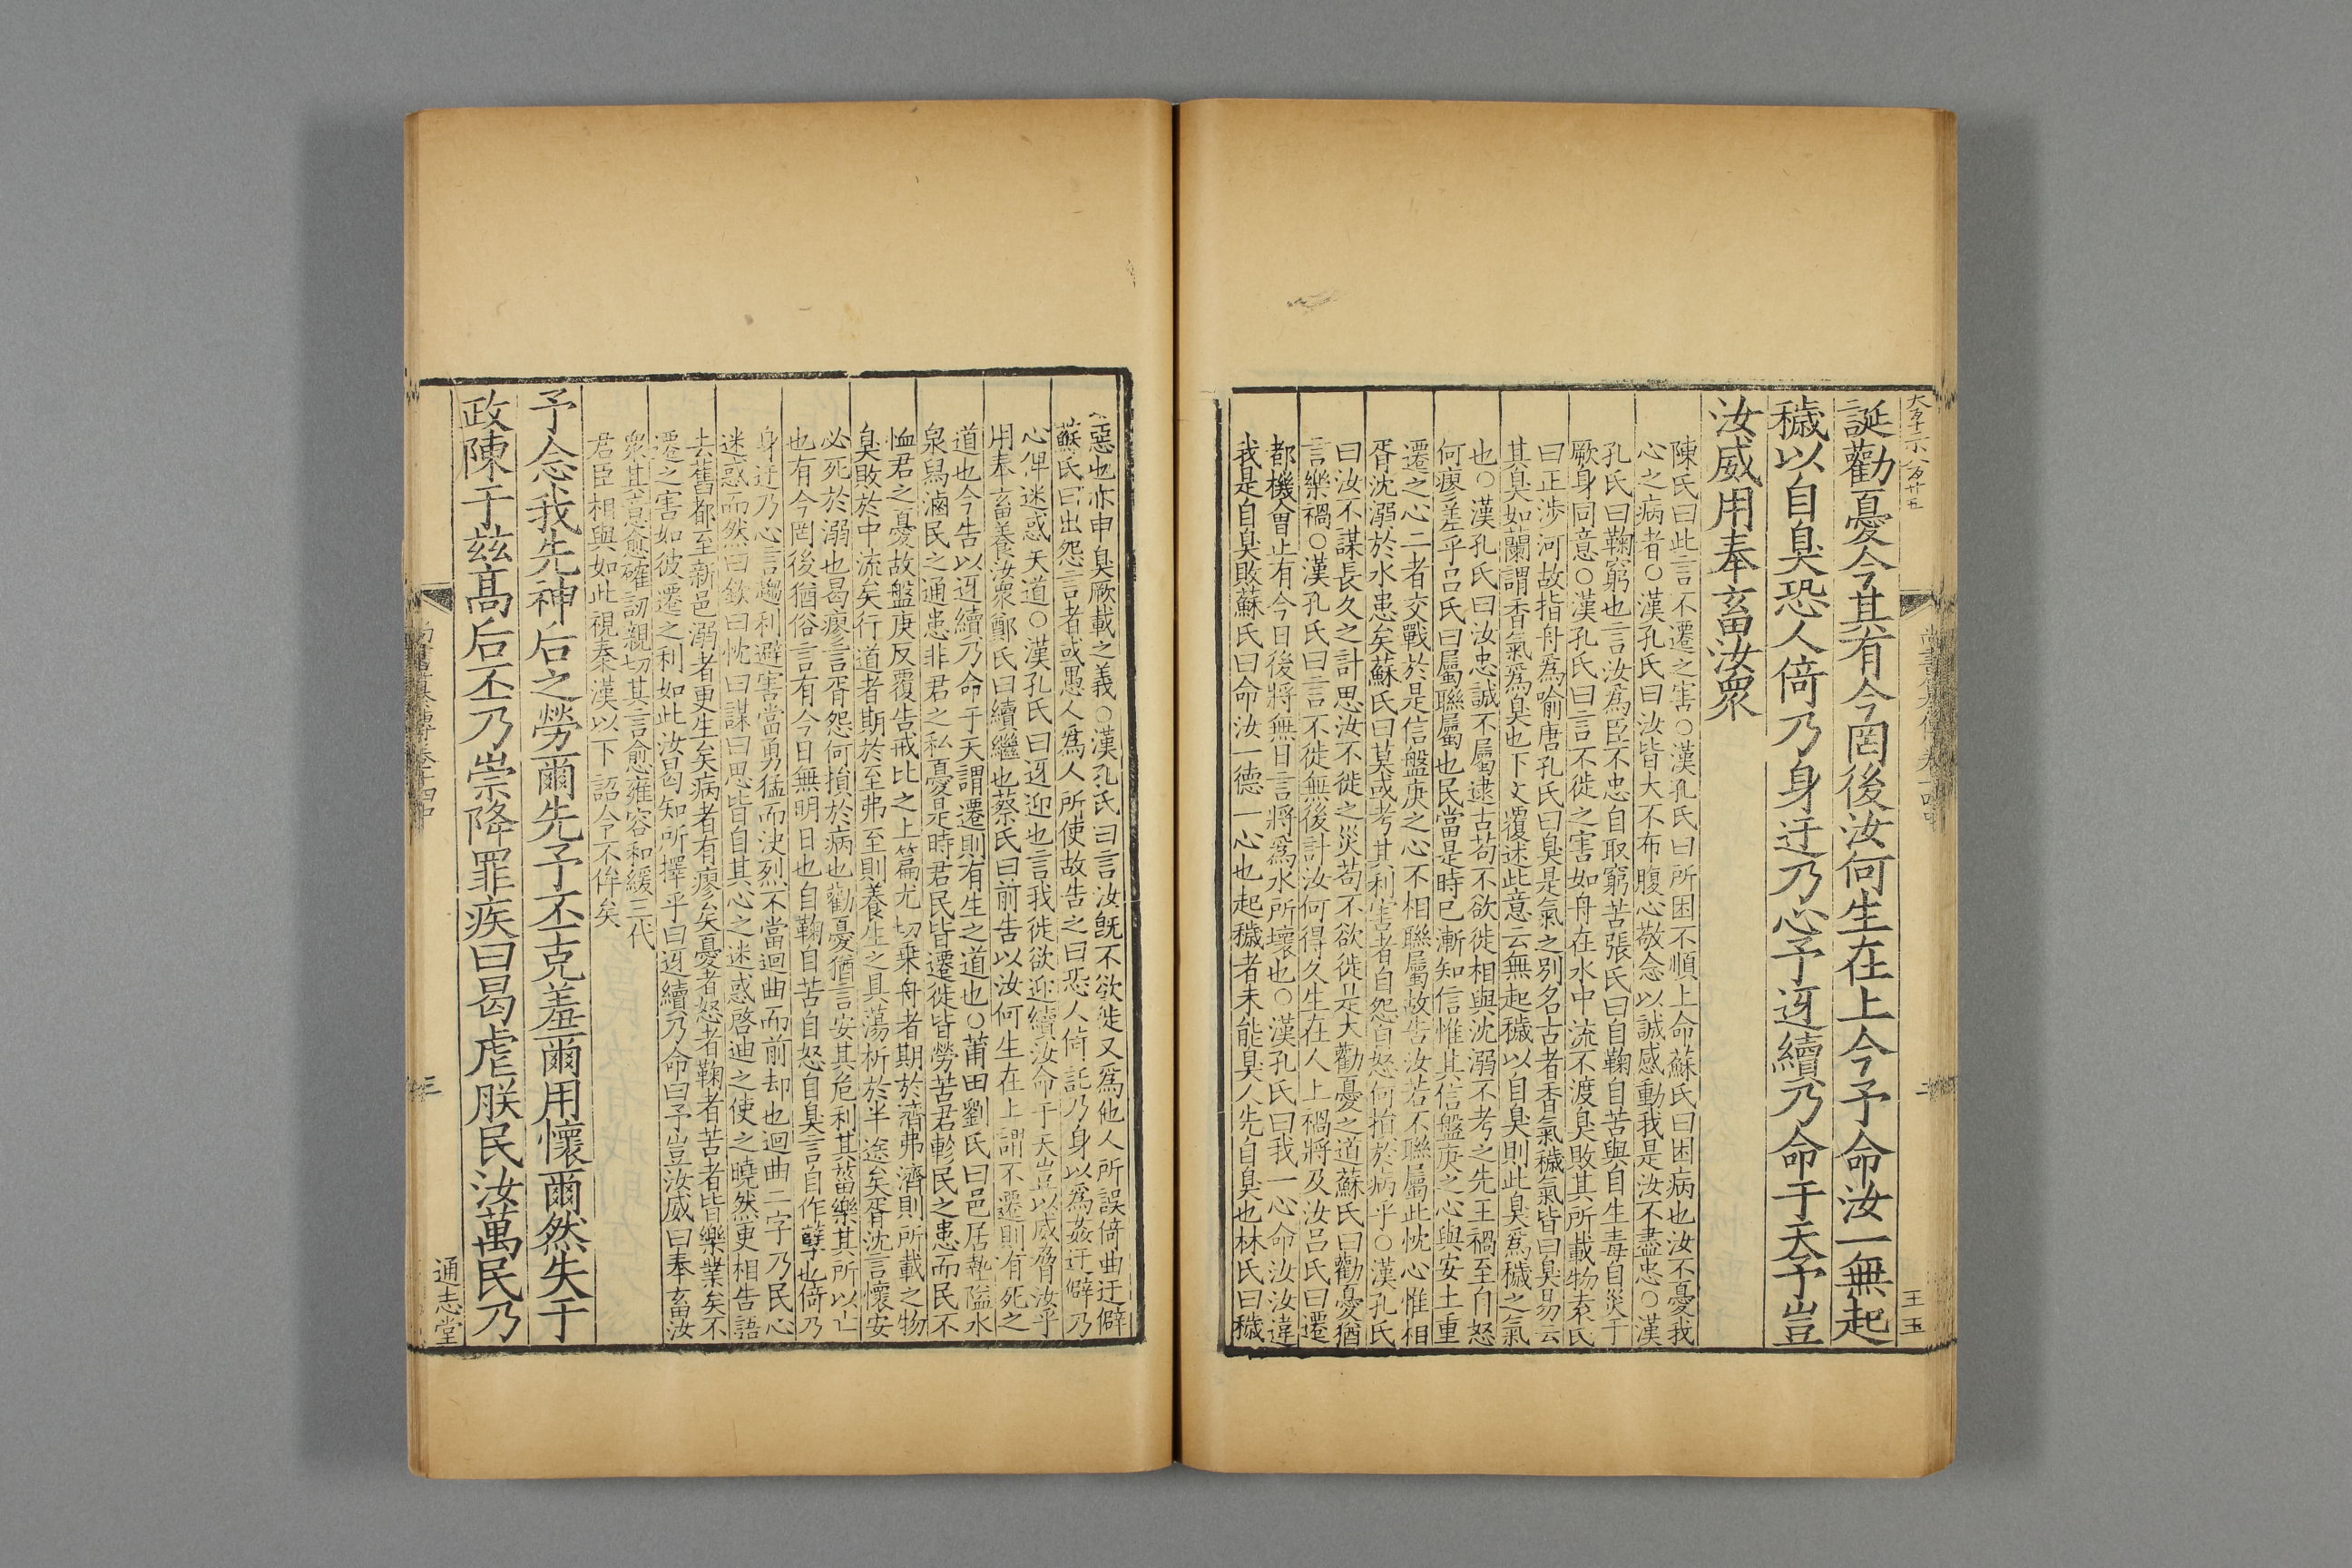 誕勸憂今其有今罔後汝何生在上今予命汝一無起
穢以自臭恐人倚乃身迂乃心予迓續乃命于天予豈
汝威用奉畜汝衆
陳氏曰此言不遷之害○漢孔氏曰所困不順上命蘇氏曰困病也汝不憂我
心之病者○漢孔氏曰汝皆大不布腹心敬念以誠感動我是汝不盡忠○漢
孔氏曰鞠窮也言汝爲臣不忠自取窮苦張氏曰自鞠自苦與自生毒自災于
厥身同意○漢孔氏曰言不徙之害如舟在水中流不渡臭敗其所載物袁氏
曰正涉河故指舟爲喻唐孔氏曰臭是氣之別名古者香氣穢氣皆曰臭易云
其臭如蘭謂香氣爲臭也下文覆述此意云無起穢以自臭則此臭爲穢之氣
也○漢孔氏曰汝忠誠不屬逮古苟不欲徙相與沈溺不考之先王禍至自怒
何瘳差乎呂氏曰屬聯屬也民當是時已漸知信惟其信盤庚之心與安土重
遷之心二者交戰於是信盤庚之心不相聯屬故告汝若不聯屬此忱心惟相
胥沈溺於水患矣蘇氏曰莫或考其利害者自怨自怒何損於病乎○漢孔氏
曰汝不謀長久之計思汝不徙之災苟不欲徙是大勸憂之道蘇氏曰勸憂猶
言樂禍○漢孔氏曰言不徙無後計汝何得久生在人上禍將及汝呂氏曰遷
都機會止有今日後將無日言將爲水所壞也○漢孔氏曰我一心命汝汝違
我是自臭敗蘇氏曰命汝一德一心也起穢者未能臭人先自臭也林氏曰穢
惡也亦申臭厥載之義○漢孔氏曰言汝旣不欲徙又爲他人所誤倚曲迂僻
蘇氏曰出怨言者或愚人爲人所使故告之曰恐人倚託乃身以爲姦迂僻乃
心俾迷惑天道○漢孔氏曰迓迎也言我徙欲迎續汝命于天豈以威脅汝乎
用奉畜養汝衆鄭氏曰續繼也蔡氏曰前告以汝何生在上謂不遷則有死之
道也今告以迓續乃命于天謂遷則有生之道也○莆田劉氏曰邑居墊隘水
泉舄滷民之通患非君之私憂是時君民皆遷徙皆勞苦君軫民之患而民不
恤君之憂故盤庚反覆告戒比之上篇尤切乗舟者期於濟弗濟則所載之物
臭敗於中流矣行道者期於至弗至則養生之具蕩析於半途矣胥沈言懷安
必死於溺也曷瘳言胥怨何損於病也勸憂猶言安其危利其菑樂其所以亡
也有今罔後猶俗言有今日無明日也自鞠自苦自怒自臭言自作孽也倚乃
身迂乃心言趨利避害當勇猛而決烈不當迴曲而前却也迴曲二字乃民心
迷惑而然曰欽曰忱曰謀曰思皆自其心之迷惑啓迪之使之曉然更相告語
去舊都至新邑溺者更生矣病者有瘳矣憂者怒者鞠者苦者皆樂業矣不
遷之害如彼遷之利如此汝曷知所擇乎曰迓續乃命曰予豈汝威曰奉畜汝
衆其意愈確詞親切其言愈雍容和緩三代
君臣相與如此視秦漢以下詔令不侔矣
予念我先神后之勞爾先予丕克羞爾用懷爾然失于
政陳于茲高后丕乃崇降罪疾曰曷虐朕民汝萬民乃
三
通志堂